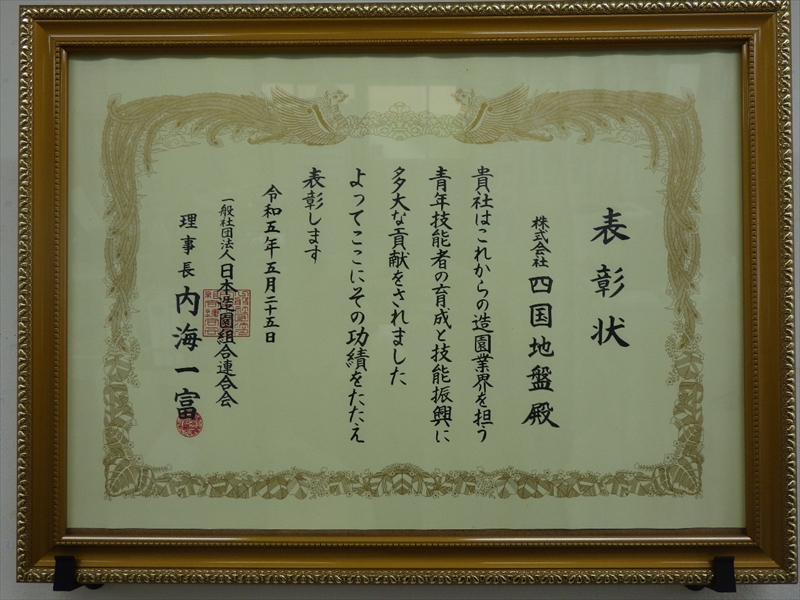 表彰状
株式会社 四国地盤殿
貴社はこれからの造園業界を担う
青年技能者の育成と技能振興に
多大な貢献をされました
よってここにその功績をたたえ
表彰します
令和五年五月二十五日
一般社団法人日本造園組合連合会
理事長 内海一富